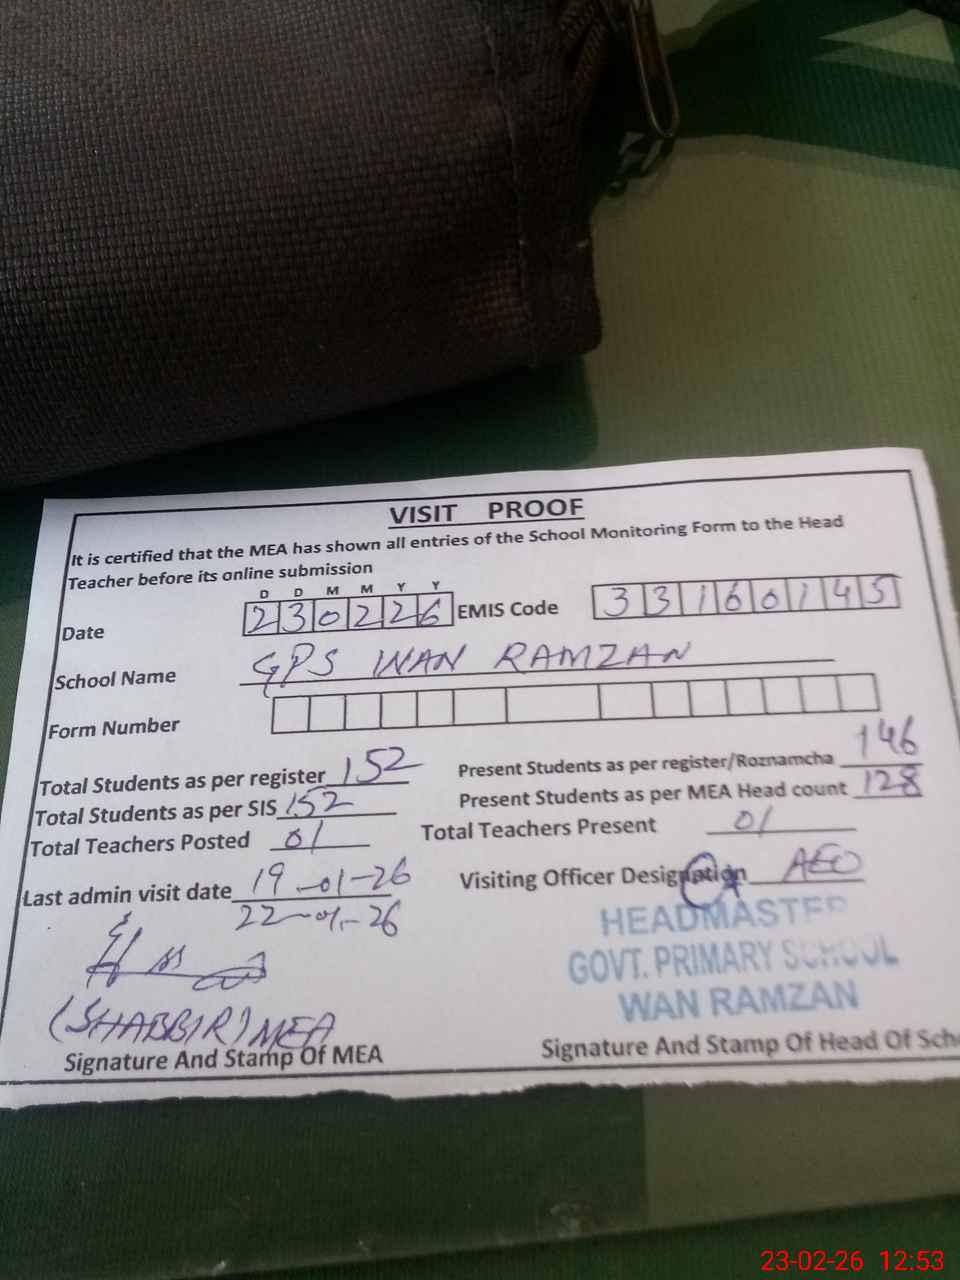 VISIT PROOF
It is certified that the MEA has shown all entries of the School Monitoring Form to the Head
Teacher before its online submission
D D M M Y Y
Date 230226 EMIS Code 33160145
School Name GPS WAN RAMZAN
Form Number
Total Students as per register 152 Present Students as per register/Roznamcha 146
Total Students as per SIS 152 Present Students as per MEA Head count 128
Total Teachers Posted 01 Total Teachers Present 01
Last admin visit date 19-01-26 Visiting Officer Designation AEO
22-01-26
HEADMASTER
GOVT. PRIMARY SCHOOL
WAN RAMZAN
(SHABBIR) MEA
Signature And Stamp Of MEA Signature And Stamp Of Head Of Sch
23-02-26 12:53